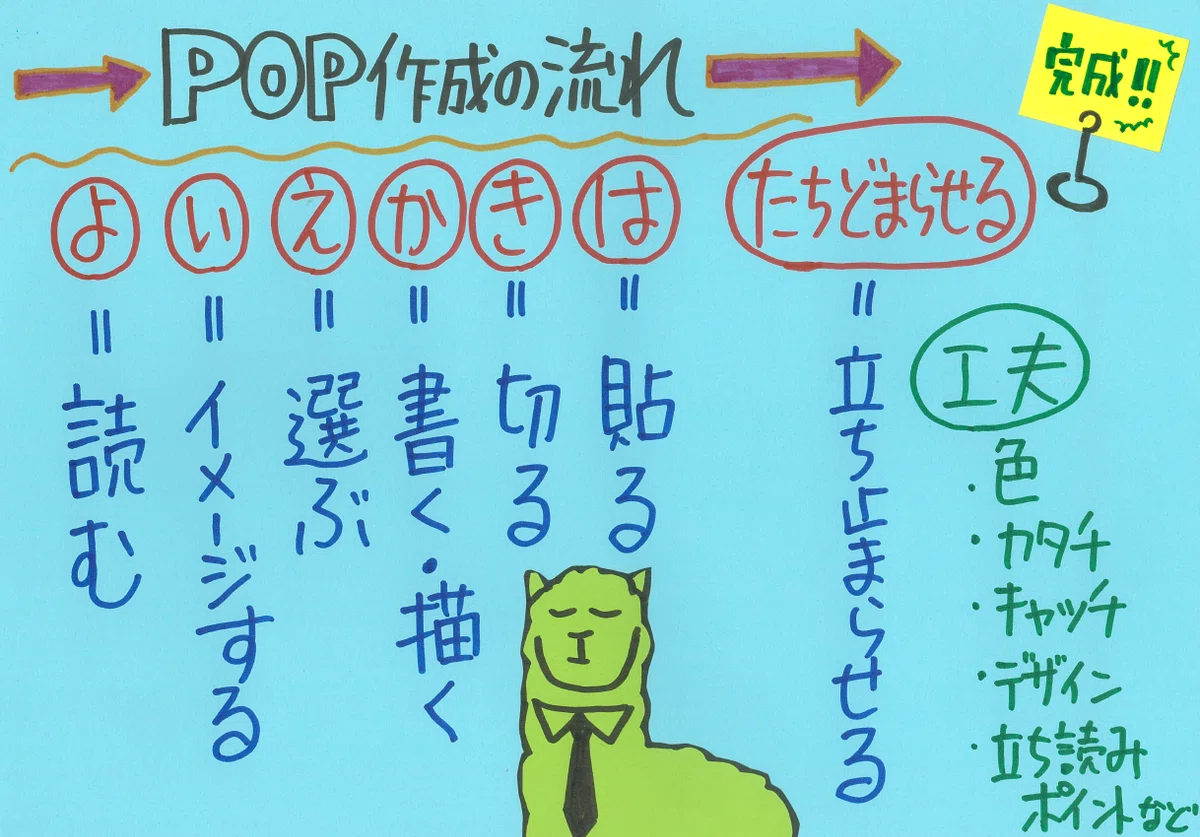 POP作成の流れ
完成!!
よ
い
え
か
き
は
たちどまらせる
=
=
=
=
=
=
=
読む
イメージする
選ぶ
書く・描く
切る
貼る
立ち止まらせる
工夫
・色
・カタチ
・キャッチ
・デザイン
・立ち読み
ポイントなど